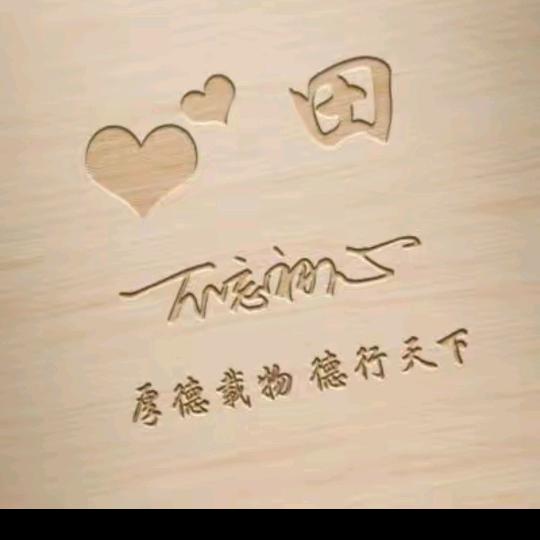 田
不忘初心
厚德载物 德行天下